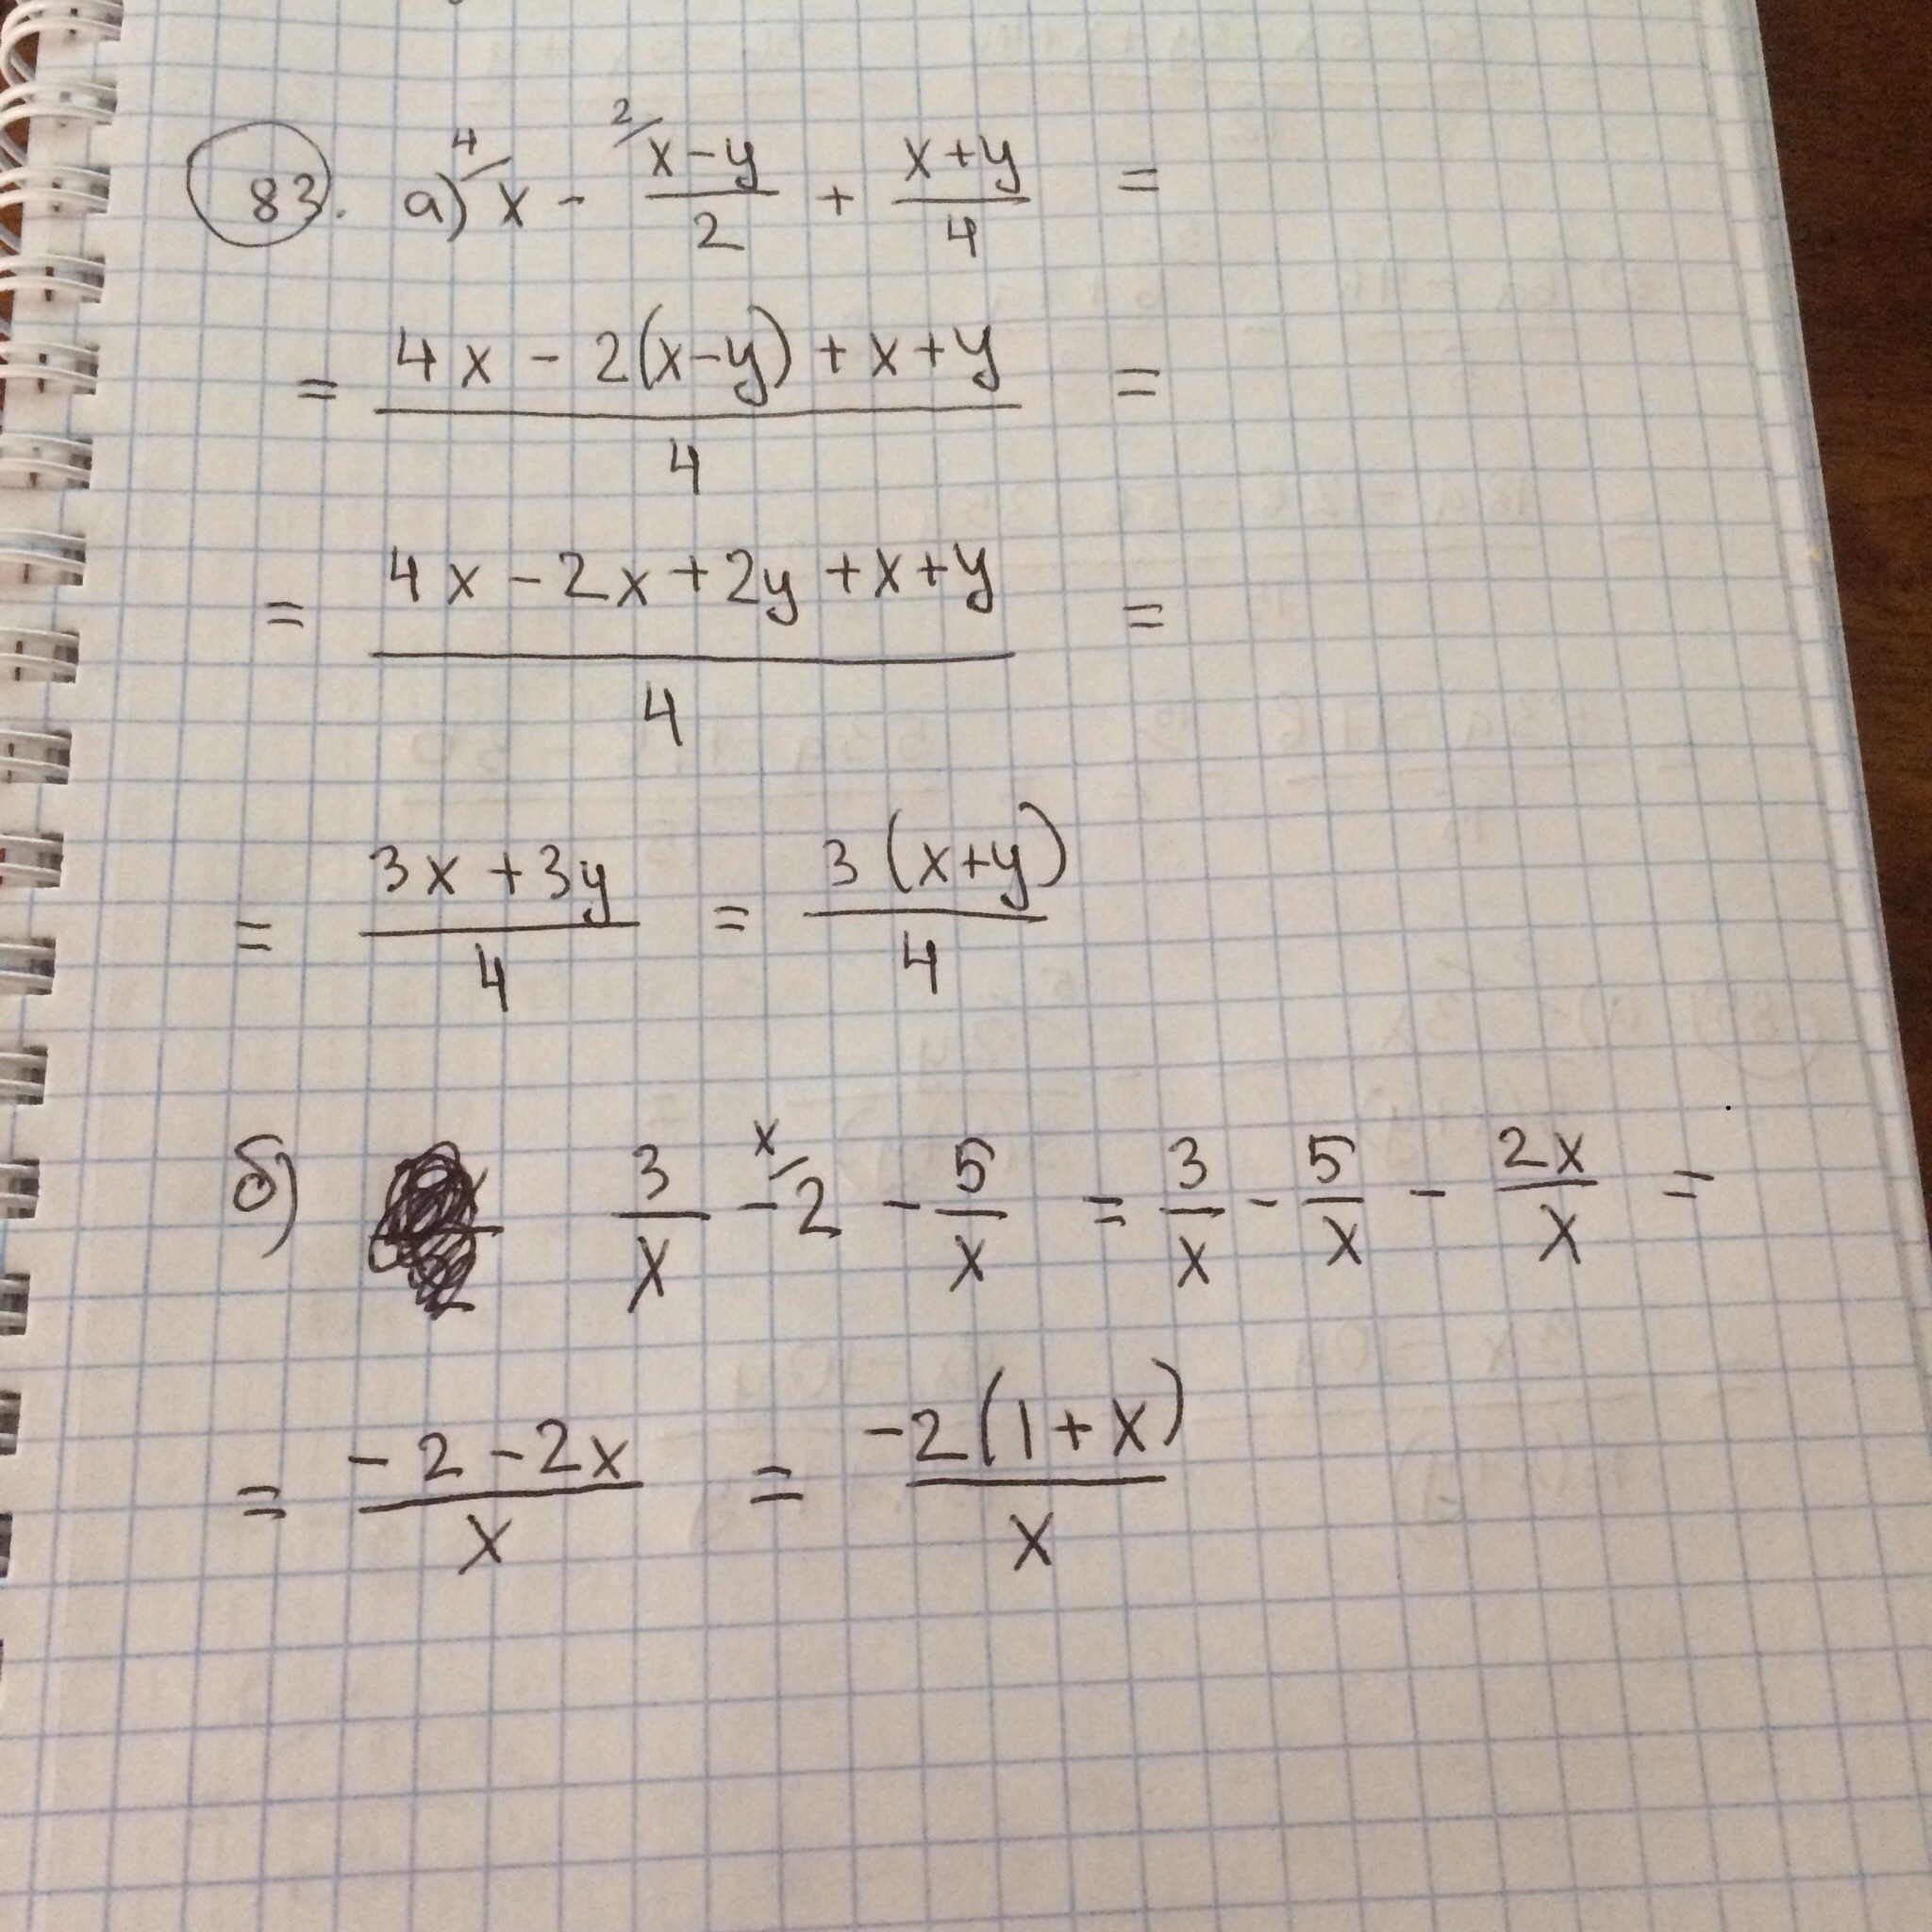 83. а) ⁴/x - ²/(x-y)/2 + (x+y)/4 =
= (4x - 2(x-y) + x+y)/4 =
= (4x - 2x + 2y + x + y)/4 =
= (3x + 3y)/4 = 3(x+y)/4
б) 3/x - ˣ/2 - 5/x = 3/x - 5/x - 2x/x =
= (-2 - 2x)/x = -2(1+x)/x